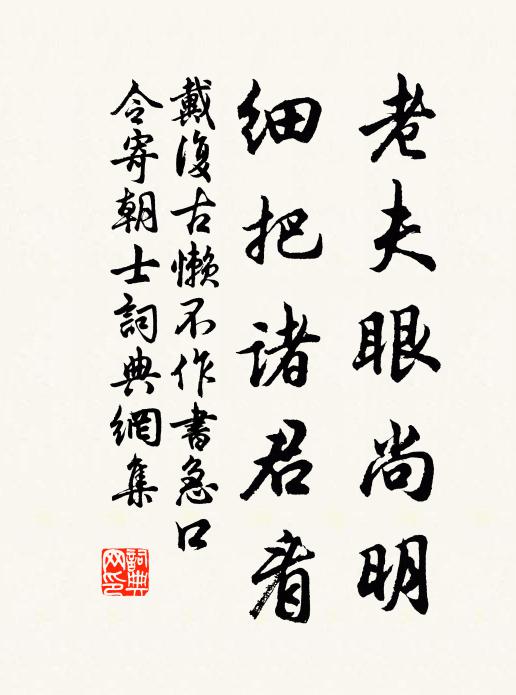 老夫眼尚明
细把诸君看
戴復古懒不作書急口
令寄朝士詞典網集
詞典网印